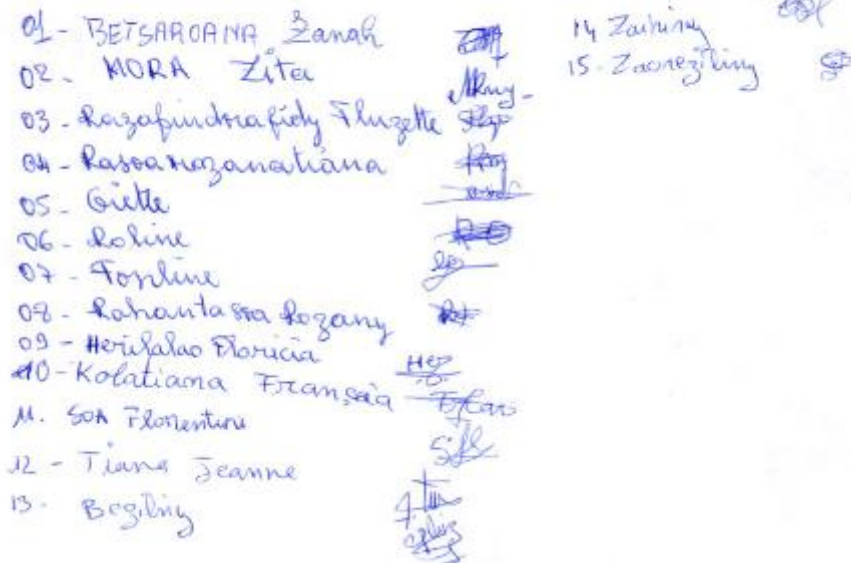 01- BETSAROANA Zanah
02- MORA Zita
03- Razafindrafidy Fluzette
04- Rasoarozanatiana
05- Giette
06- Roline
07- Fopline
08- Rahantassa Rozany
09- Herifalao Floricia
10- Kolatiana Fransçia
11. SOA Florentine
12- Tiana Jeanne
13. Begiliny
14 Zaininy
15- Zaoreziliny